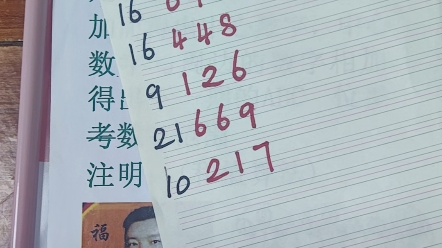 加
16
16 448
数
9 126
得出
21 669
考数
10 217
注明
福